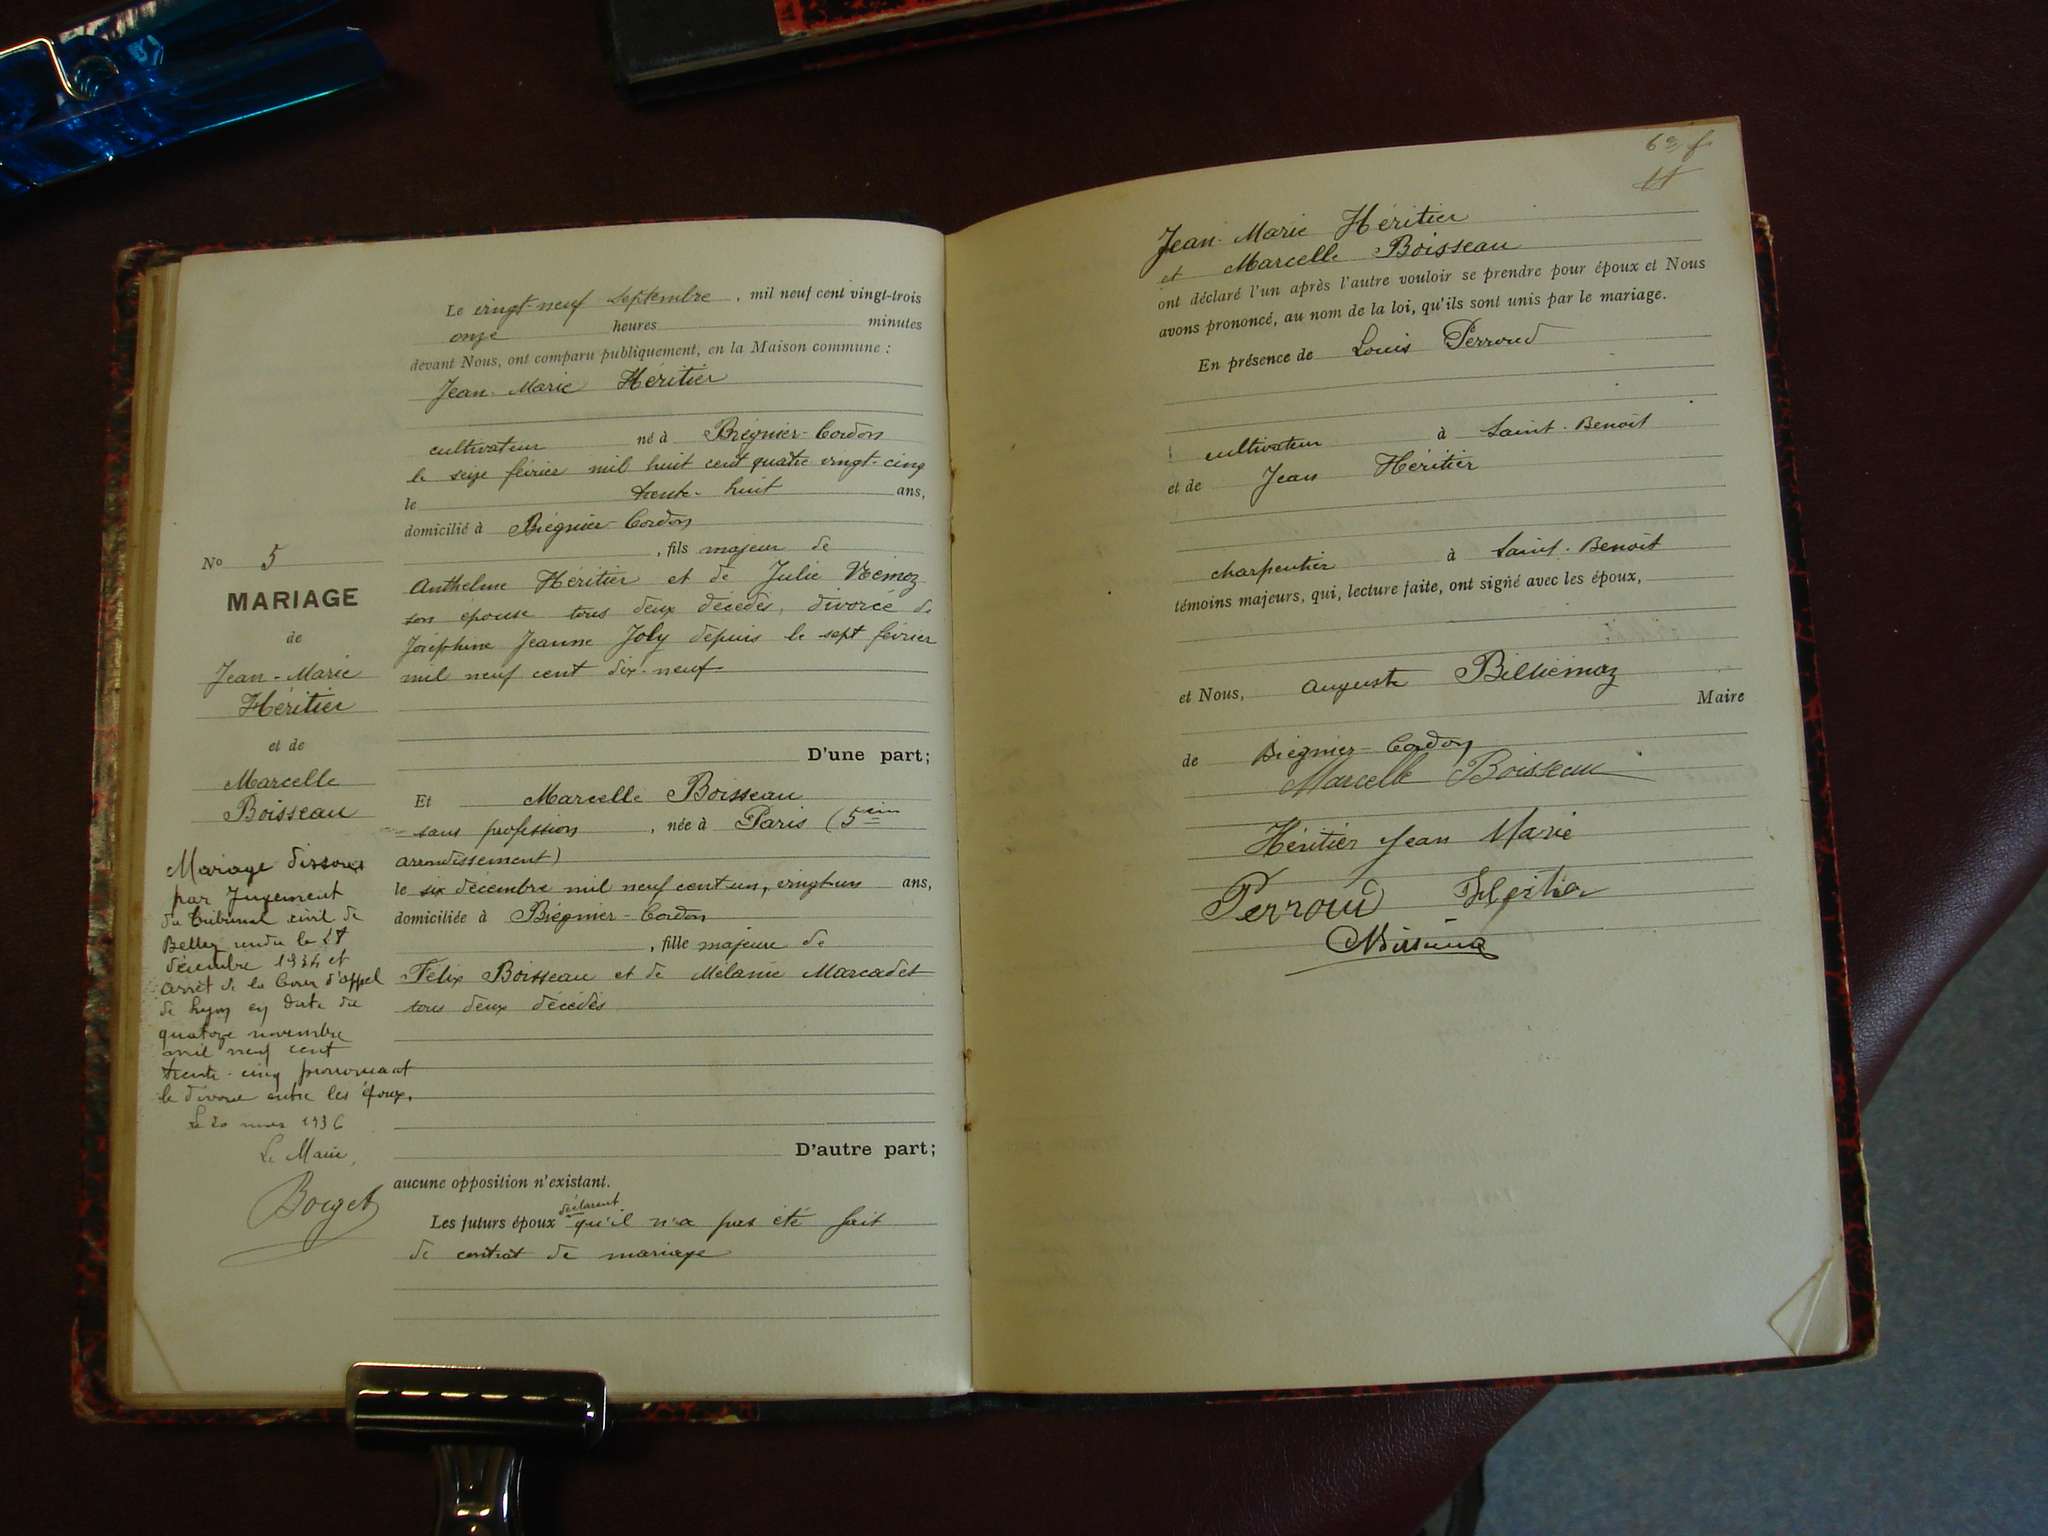 Le vingt-neuf septembre, mil neuf cent vingt-trois
onze heures minutes
devant Nous, ont comparu publiquement, en la Maison commune :
Jean-Marie Héritier
cultivateur né à Brégnier-Cordon
le seize février mil huit cent quatre vingt-cinq
le trente-huit ans,
domicilié à Brégnier-Cordon
, fils majeur de
Anthelme Héritier et de Julie Vémoz
son épouse tous deux décédés, divorcé de
Joséphine Jeanne Joly depuis le sept février
mil neuf cent dix-neuf
D'une part;
No 5
MARIAGE
de
Jean-Marie
Héritier
et de
Marcelle
Boisseau
Mariage dissous
par Jugement
du tribunal civil de
Belley rendu le
décembre 1934 et
arrêt de la Cour d'appel
de Lyon en date du
quatorze novembre
mil neuf cent
trente-cinq prononçant
le divorce entre les époux.
Le 20 mars 1936
Le Maire,
Borget
Et Marcelle Boisseau
sans profession, née à Paris (5ème
arrondissement)
le six décembre mil neuf cent un, vingt-un ans,
domiciliée à Brégnier-Cordon
, fille majeure de
Félix Boisseau et de Mélanie Marcadet
tous deux décédés
D'autre part;
aucune opposition n'existant.
Les futurs époux déclarent qu'il n'a pas été fait
de contrat de mariage
Jean-Marie Héritier
et Marcelle Boisseau
ont déclaré l'un après l'autre vouloir se prendre pour époux et Nous
avons prononcé, au nom de la loi, qu'ils sont unis par le mariage.
En présence de Louis Perroud
cultivateur à Saint-Benoit
et de Jean Héritier
charpentier à Saint-Benoit
témoins majeurs, qui, lecture faite, ont signé avec les époux,
et Nous, Auguste Billiemaz
Maire
de Brégnier-Cordon
Marcelle Boisseau
Héritier Jean Marie
Perroud Héritier